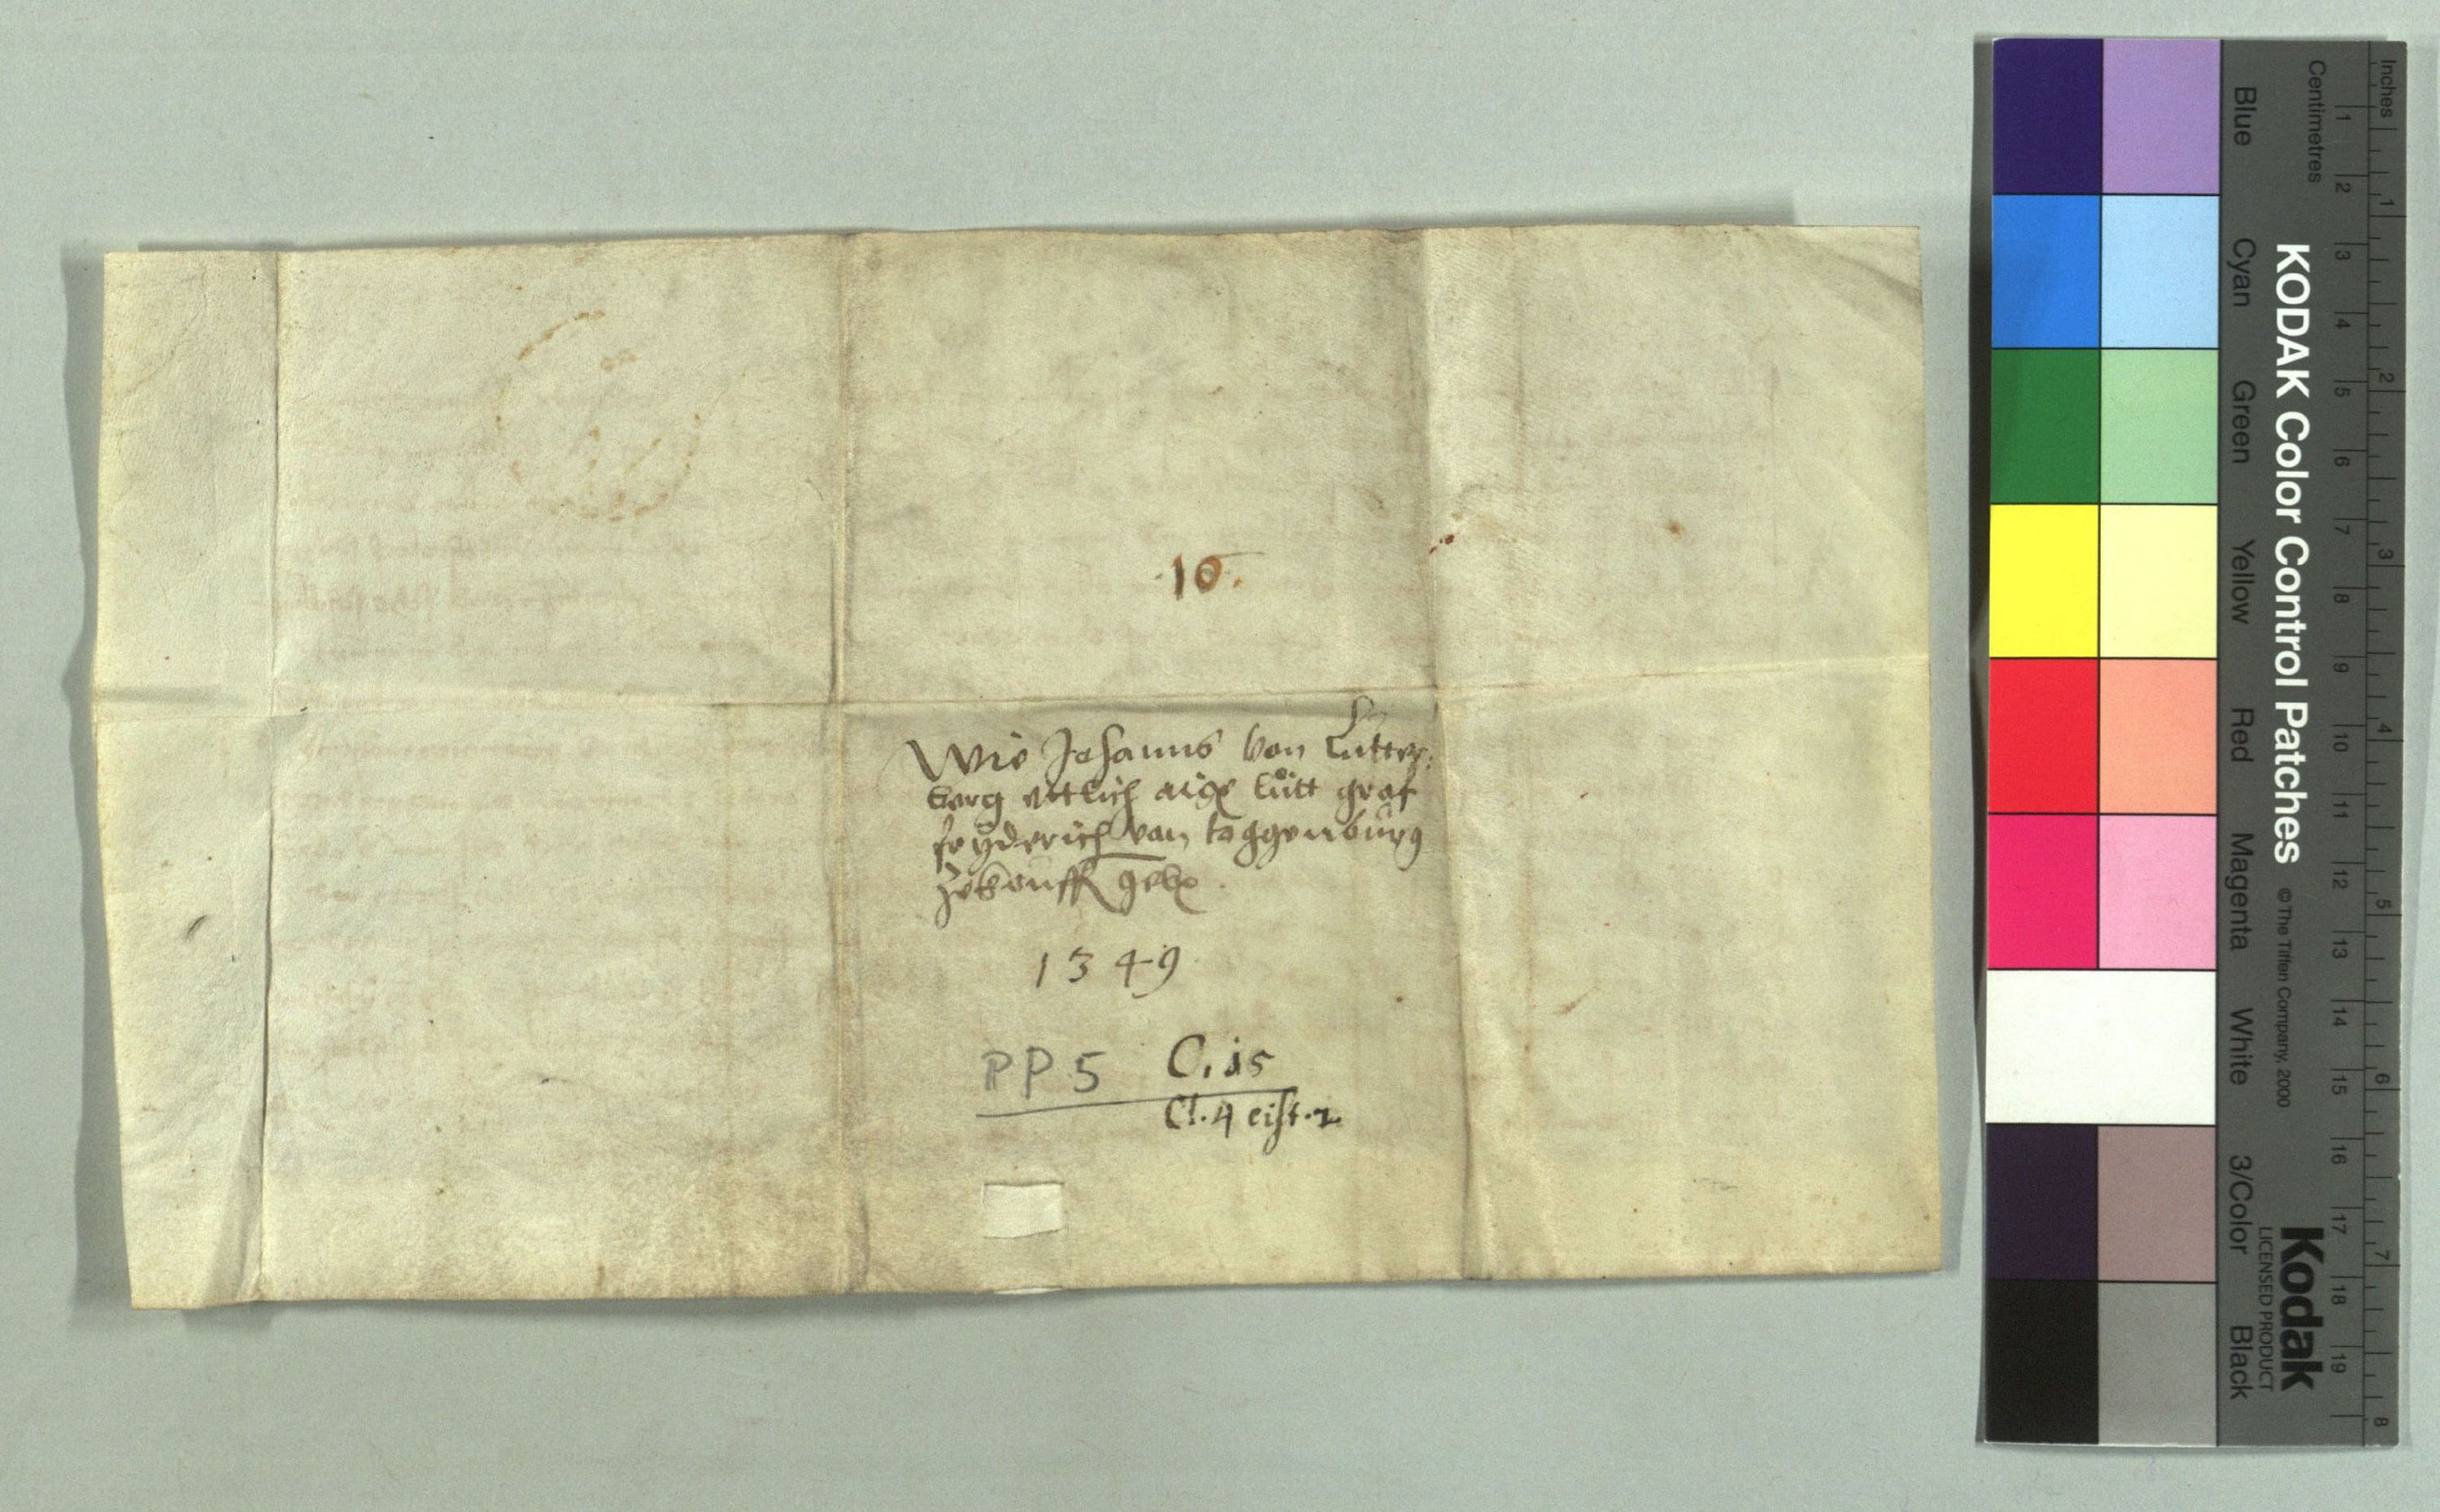 .10.
Wie Johanns von Lutter:
berg etlich aigē lütt graf
fryderich von toggenburg
zekouff gebē
1349
PP 5 C. 15
Cl. 4 cist. 2
Inches
Centimetres
1 2 3 4 5 6 7 8
1 2 3 4 5 6 7 8 9 10 11 12 13 14 15 16 17 18 19
KODAK Color Control Patches © The Tiffen Company, 2000
Kodak
LICENSED PRODUCT
Blue Cyan Green Yellow Red Magenta White 3/Color Black